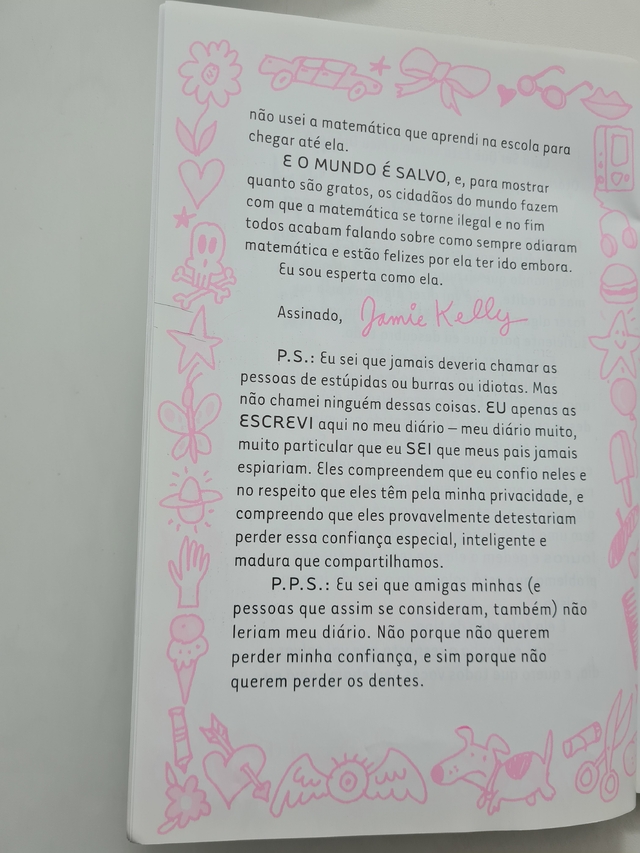 não usei a matemática que aprendi na escola para
chegar até ela.
E O MUNDO É SALVO, e, para mostrar
quanto são gratos, os cidadãos do mundo fazem
com que a matemática se torne ilegal e no fim
todos acabam falando sobre como sempre odiaram
matemática e estão felizes por ela ter ido embora.
Eu sou esperta como ela.
Assinado, Jamie Kelly
P.S.: Eu sei que jamais deveria chamar as
pessoas de estúpidas ou burras ou idiotas. Mas
não chamei ninguém dessas coisas. EU apenas as
ESCREVI aqui no meu diário – meu diário muito,
muito particular que eu SEI que meus pais jamais
espiariam. Eles compreendem que eu confio neles e
no respeito que eles têm pela minha privacidade, e
compreendo que eles provavelmente detestariam
perder essa confiança especial, inteligente e
madura que compartilhamos.
P.P.S.: Eu sei que amigas minhas (e
pessoas que assim se consideram, também) não
leriam meu diário. Não porque não querem
perder minha confiança, e sim porque não
querem perder os dentes.